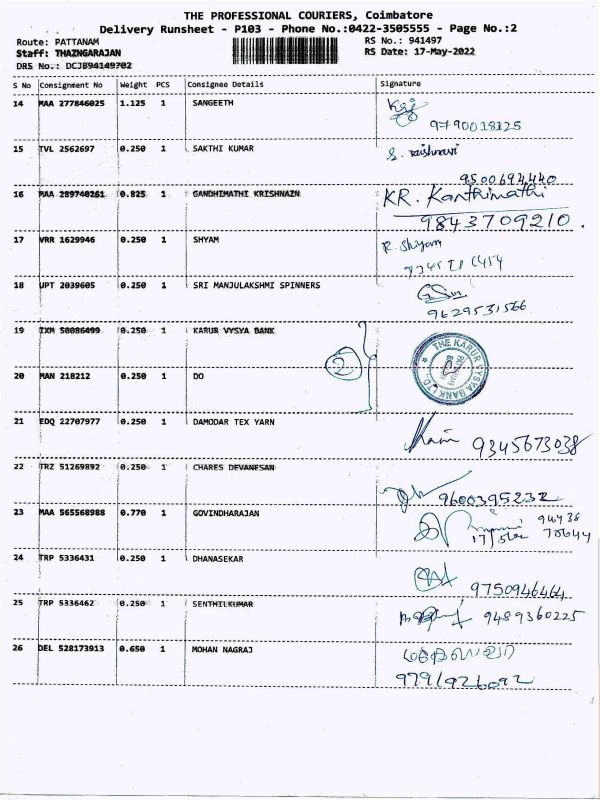 THE PROFESSIONAL COURIERS, Coimbatore
Delivery Runsheet - P103 - Phone No.:0422-3505555 - Page No.:2
Route: PATTANAM RS No.: 941497
Staff: THAZNGARAJAN RS Date: 17-May-2022
DRS No.: DCJB94149702
S No Consignment No Weight PCS Consignee Details Signature
14 MAA 277846025 1.125 1 SANGEETH
9790018125
15 TVL 2562697 0.250 1 SAKTHI KUMAR S. vaishnavi
9500694440
16 MAA 289740261 0.825 1 GANDHIMATHI KRISHNAZN KR. Kanthimathi
9843709210.
17 VRR 1629946 0.250 1 SHYAM R. Shyam
18 UPT 2039605 0.250 1 SRI MANJULAKSHMI SPINNERS
9629531566
19 IXM 50086499 0.250 1 KARUR VYSYA BANK
2 THE KARUR VYSYA BANK LTD.
20 MAN 218212 0.250 1 DO
21 EDQ 22707977 0.250 1 DAMODAR TEX YARN 9345673038
22 TRZ 51269892 0.250 1 CHARES DEVANESAN
9600395232
23 MAA 565568988 0.770 1 GOVINDHARAJAN 94438
70644
24 TRP 5336431 0.250 1 DHANASEKAR
9750946464
25 TRP 5336462 0.250 1 SENTHILKUMAR 9489360225
26 DEL 528173913 0.650 1 MOHAN NAGRAJ
9791926092